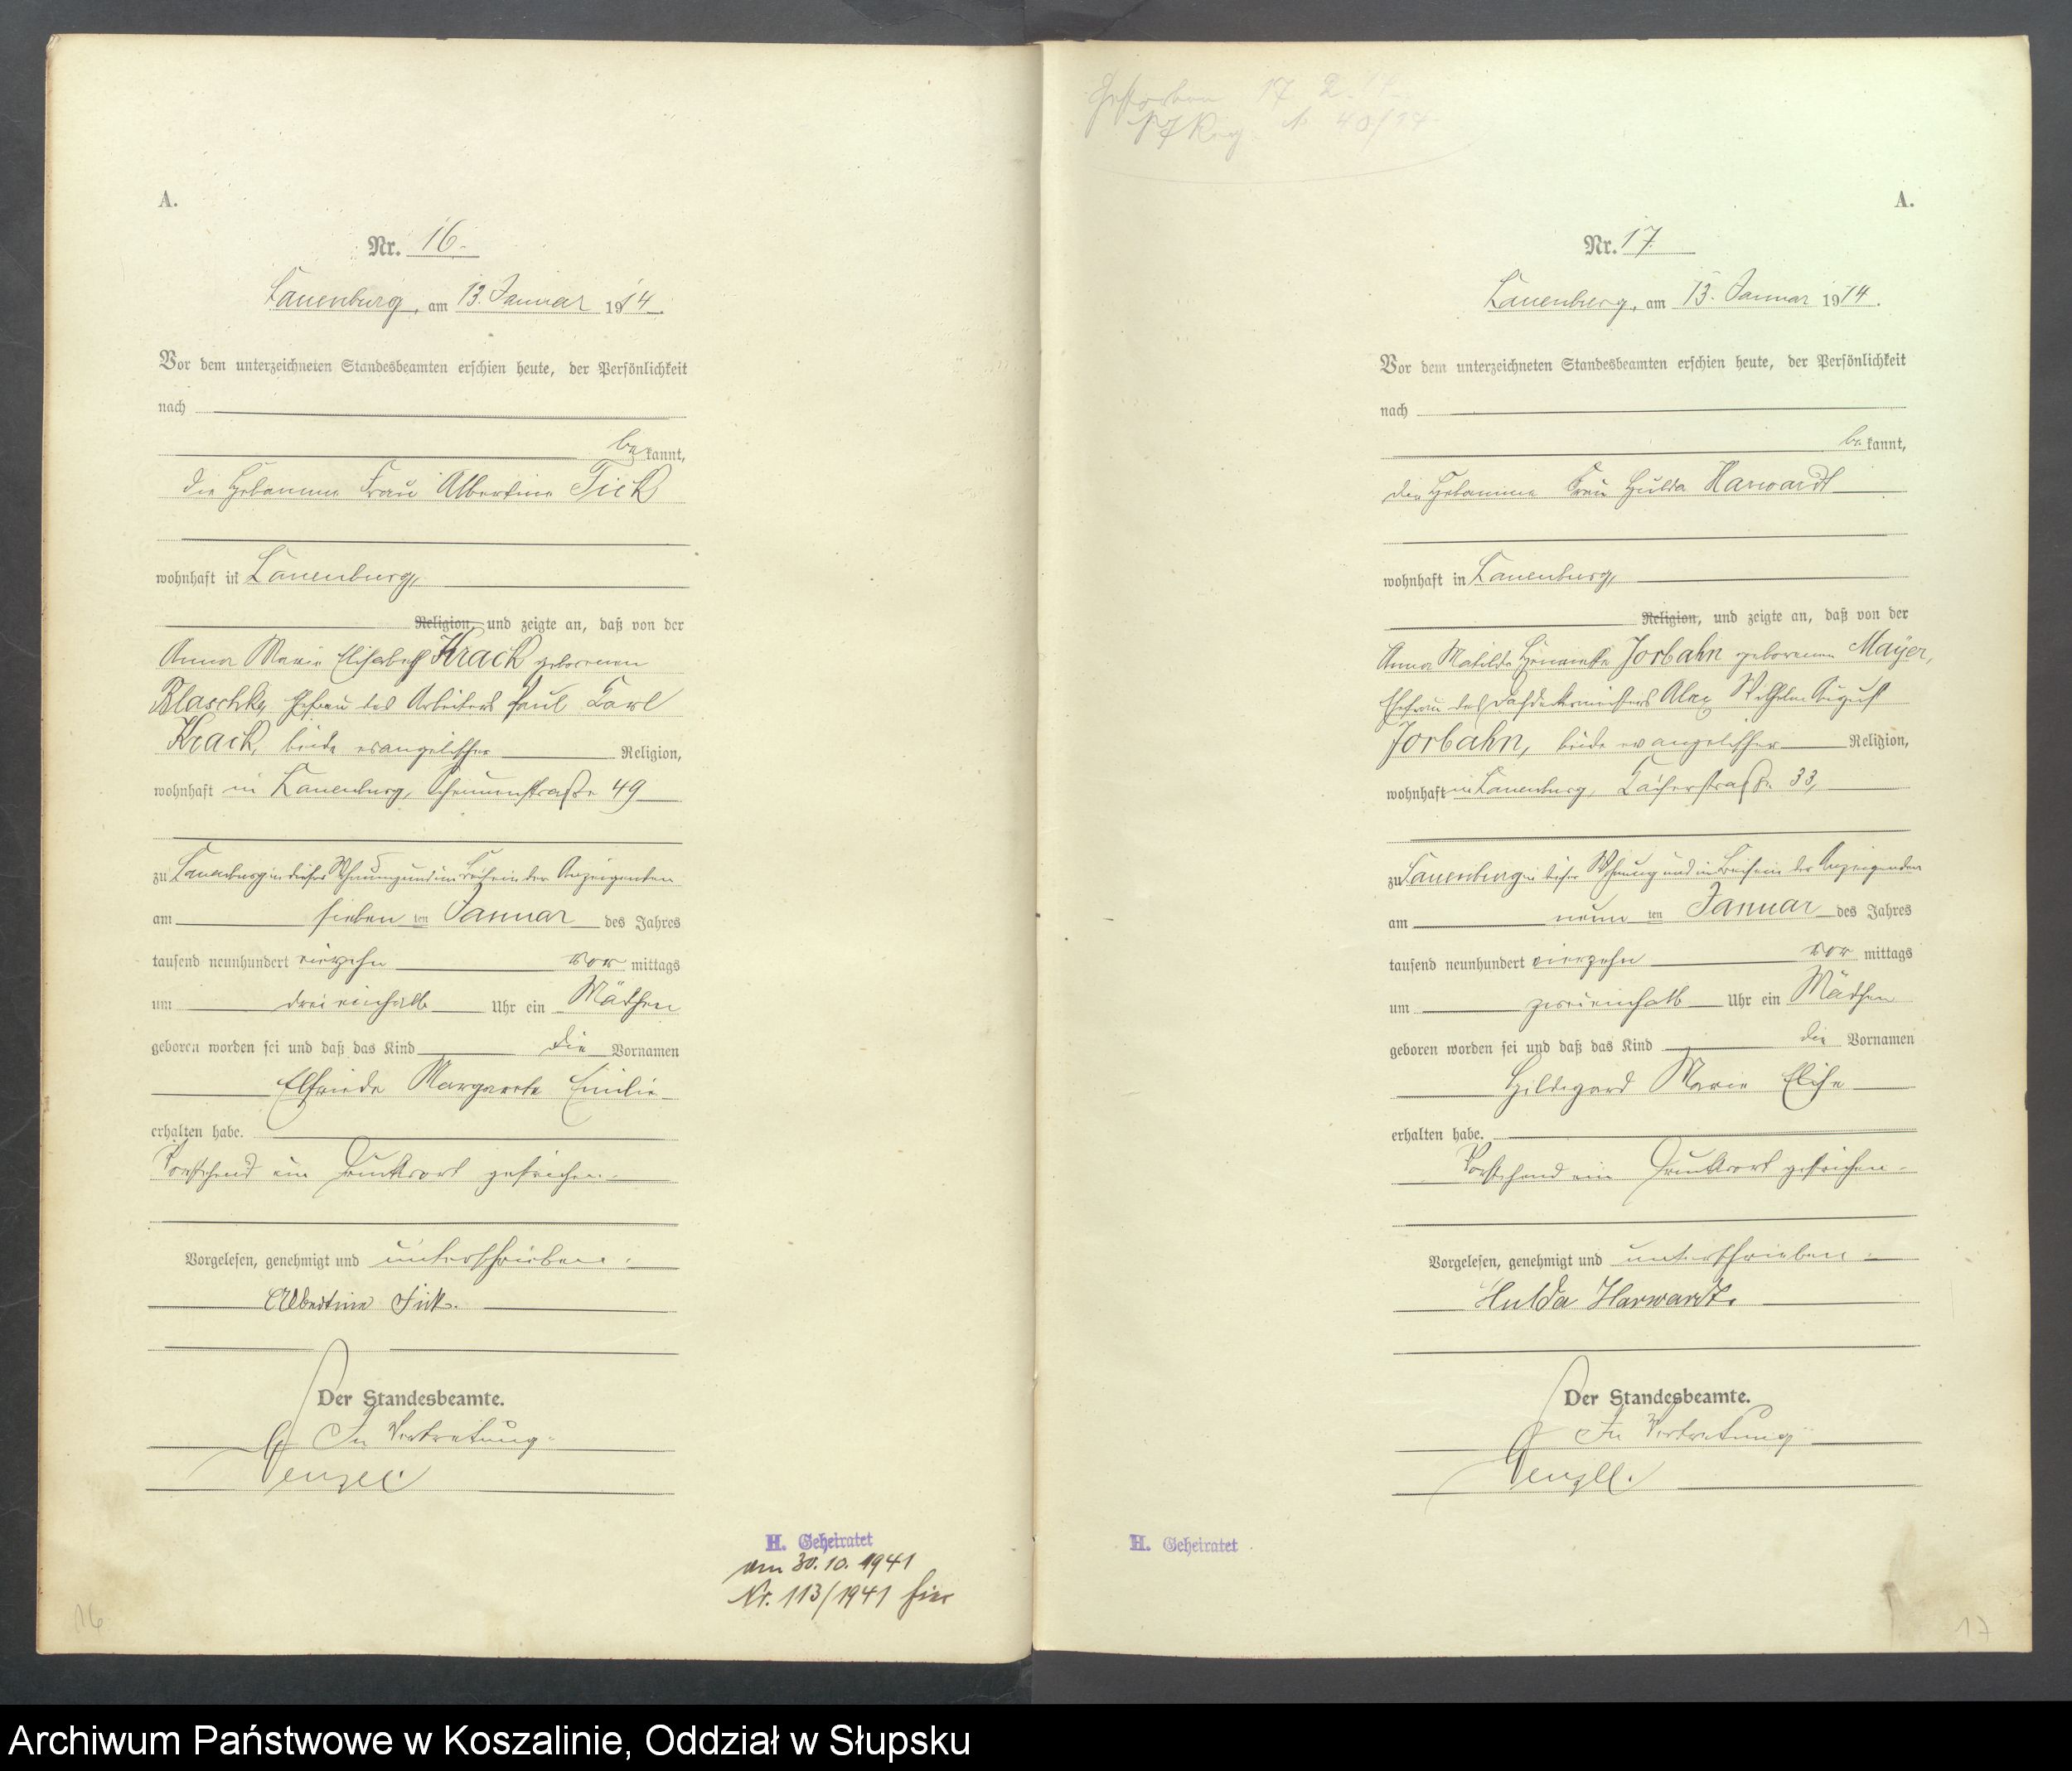 A.
Nr. 16.
Lauenburg, am 13. Januar 1914.
Vor dem unterzeichneten Standesbeamten erschien heute, der Persönlichkeit
nach
be kannt,
die Hebamme Frau Albertine Fick
wohnhaft in Lauenburg,
Religion, und zeigte an, daß von der
Anna Marie Elisabeth Krack geborenen
Blaschke, Ehefrau des Arbeiters Paul Karl
Krack, beide evangelischer Religion,
wohnhaft in Lauenburg, Scheunenstraße 49
zu Lauenburg in dieser Wohnung und im Beisein der Anzeigenden
am sieben ten Januar des Jahres
tausend neunhundert vierzehn vor mittags
um dreieinhalb Uhr ein Mädchen
geboren worden sei und daß das Kind die Vornamen
Elfriede Margarete Emilie
erhalten habe.
Vorstehend ein Druckwort gestrichen.
Vorgelesen, genehmigt und unterschrieben.
Albertine Fick.
Der Standesbeamte.
In Vertretung.
H. Geheiratet
am 30.10.1941
Nr. 113/1941 hier
16
Gestorben 17. 2. 14
Reg. N 40/14
A.
Nr. 17
Lauenburg, am 13. Januar 1914.
Vor dem unterzeichneten Standesbeamten erschien heute, der Persönlichkeit
nach
be kannt,
die Hebamme Frau Hulda Harwardt
wohnhaft in Lauenburg,
Religion, und zeigte an, daß von der
Anna Matilde Henriette Jorbahn geborenen Mayer,
Ehefrau des Dachdeckermeisters Alex Wilhelm August
Jorbahn, beide evangelischer Religion,
wohnhaft in Lauenburg, 33,
zu Lauenburg in dieser Wohnung und im Beisein der Anzeigenden
am neun ten Januar des Jahres
tausend neunhundert vierzehn vor mittags
um zweieinhalb Uhr ein Mädchen
geboren worden sei und daß das Kind die Vornamen
Hildegard Marie Elise
erhalten habe.
Vorstehend ein Druckwort gestrichen.
Vorgelesen, genehmigt und unterschrieben.
Hulda Harwardt.
Der Standesbeamte.
In Vertretung
H. Geheiratet
17
Archiwum Państwowe w Koszalinie, Oddział w Słupsku